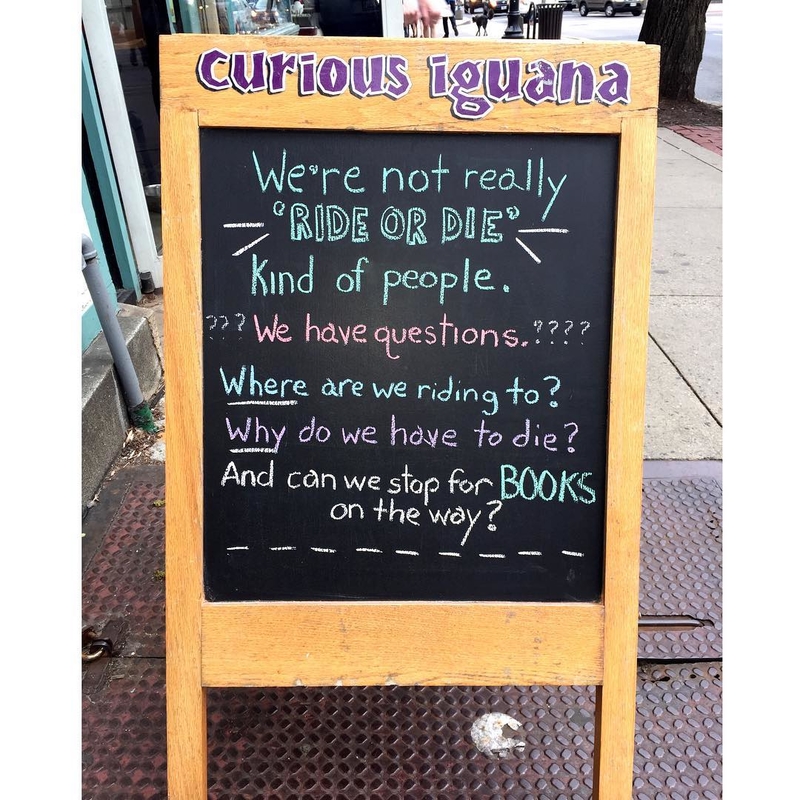 curious iguana
We're not really
"RIDE OR DIE"
Kind of people.
??? We have questions. ????
Where are we riding to?
Why do we have to die?
And can we stop for BOOKS
on the way?